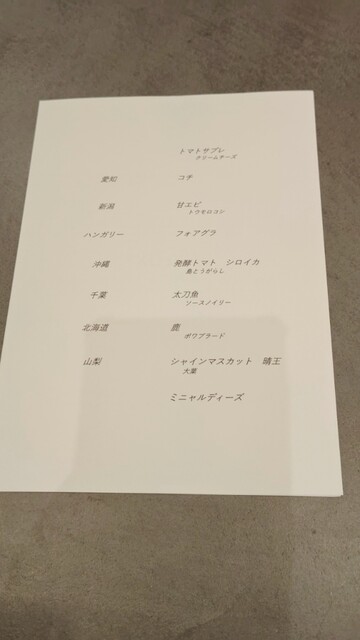 トマトサブレ
クリームチーズ
愛知 コチ
新潟 甘エビ
トウモロコシ
ハンガリー フォアグラ
沖縄 発酵トマト シロイカ
島とうがらし
千葉 太刀魚
ソースノイリー
北海道 鹿
ポワブラード
山梨 シャインマスカット 晴王
大葉
ミニャルディーズ